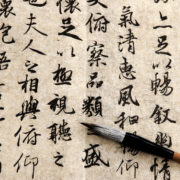 足以暢叙幽情
氣清惠風和暢仰
俯察品類盛
懷足以極視聽之
也夫人之相與俯仰